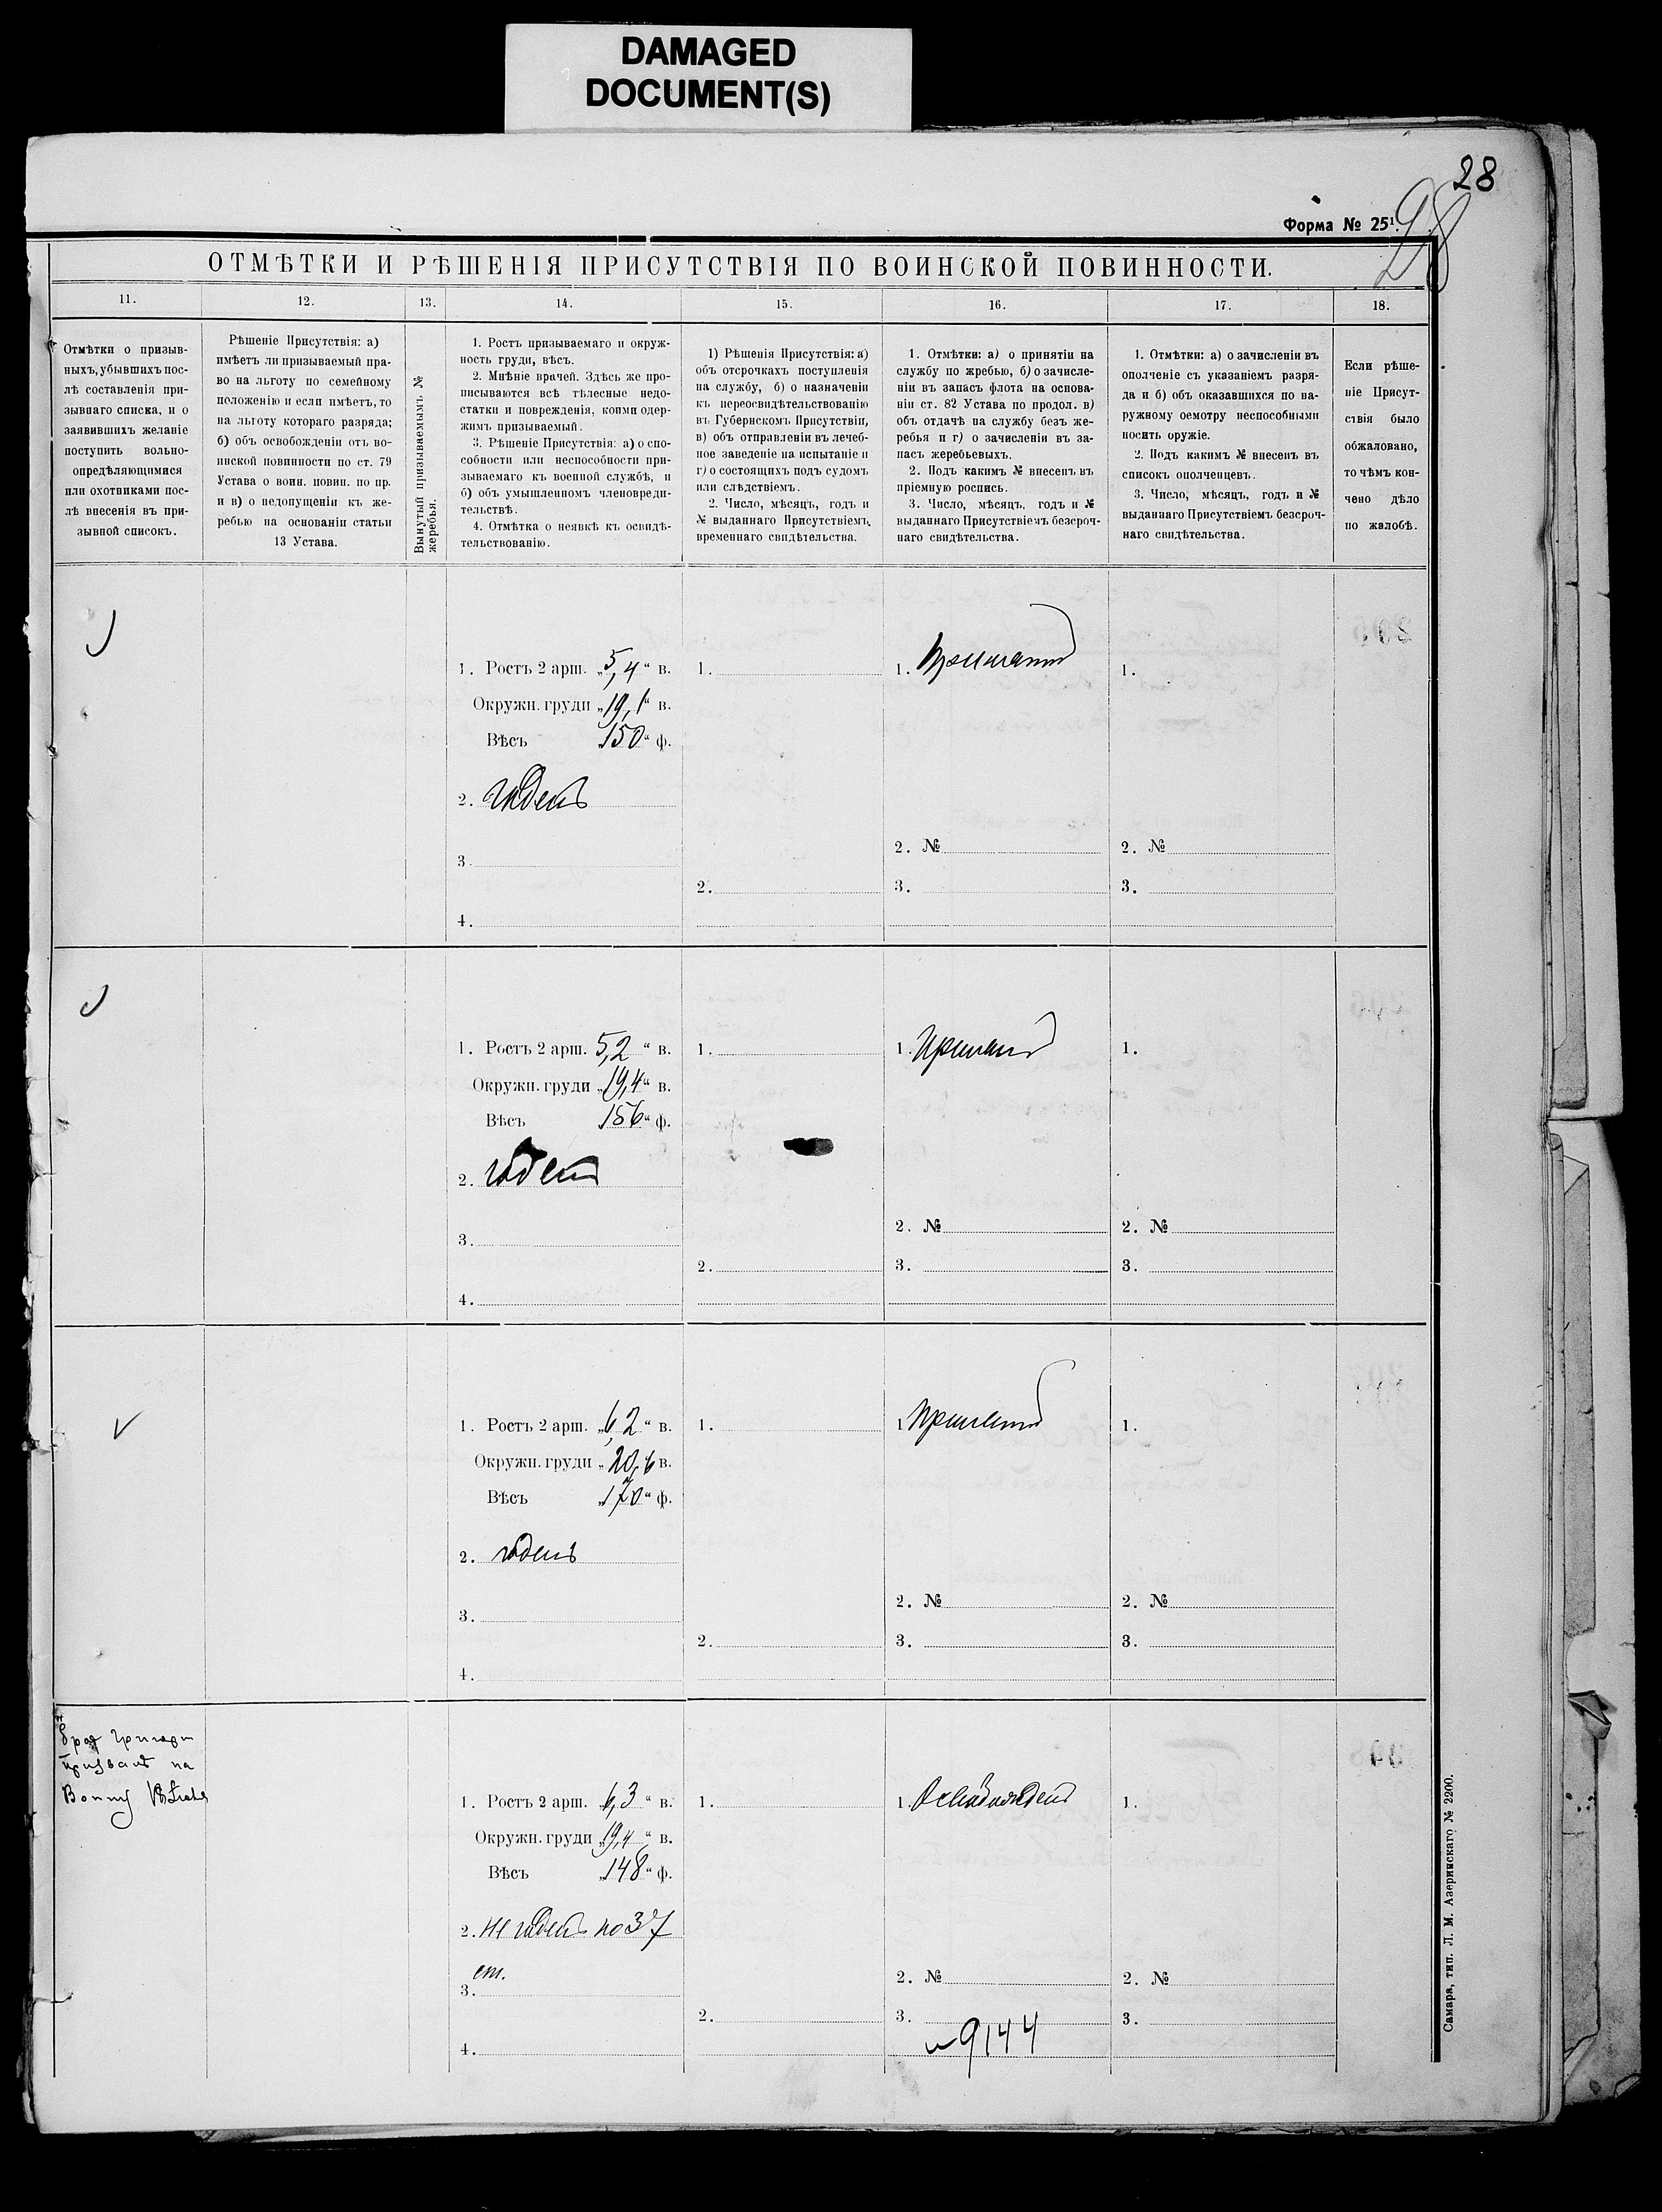 DAMAGED
DOCUMENT(S)
28
Форма № 25¹.
28
ОТМѢТКИ И РѢШЕНІЯ ПРИСУТСТВІЯ ПО ВОИНСКОЙ ПОВИННОСТИ.
11. 12. 13. 14. 15. 16. 17. 18.
Отмѣтки о призыв-
ныхъ, убывшихъ пос-
лѣ составленія при-
зывнаго списка, и о
заявившихъ желаніе
поступить вольно-
опредѣляющимися
или охотниками пос-
лѣ внесенія въ при-
зывной списокъ.
Рѣшеніе Присутствія: а)
имѣетъ ли призываемый пра-
во на льготу по семейному
положенію и если имѣетъ, то
на льготу котораго разряда;
б) объ освобожденіи отъ во-
инской повинности по ст. 79
Устава о воин. повин. по пр.
и в) о недопущеніи къ же-
ребью на основаніи статьи
13 Устава.
Вынутый призываемымъ №
жеребья.
1. Ростъ призываемаго и окруж-
ность груди, вѣсъ.
2. Мнѣніе врачей. Здѣсь же про-
писываются всѣ тѣлесные недо-
статки и поврежденія, коими одер-
жимъ призываемый.
3. Рѣшеніе Присутствія: а) о спо-
собности или неспособности при-
зываемаго къ военной службѣ, и
б) объ умышленномъ членовреди-
тельствѣ.
4. Отмѣтка о неявкѣ къ освидѣ-
тельствованію.
1) Рѣшенія Присутствія: а)
объ отсрочкахъ поступленія
на службу, б) о назначеніи
къ переосвидѣтельствованію
въ Губернскомъ Присутствіи,
в) объ отправленіи въ лечеб-
ное заведеніе на испытаніе и
г) о состоящихъ подъ судомъ
или слѣдствіемъ.
2. Число, мѣсяцъ, годъ и
№ выданнаго Присутствіемъ
временнаго свидѣтельства.
1. Отмѣтки: а) о принятіи на
службу по жребью, б) о зачисле-
ніи въ запасъ флота на основа-
ніи ст. 82 Устава по продол. в)
объ отдачѣ на службу безъ же-
ребья и г) о зачисленіи въ за-
пасъ жеребьевыхъ.
2. Подъ какимъ № внесенъ въ
пріемную роспись.
3. Число, мѣсяцъ, годъ и №
выданнаго Присутствіемъ безсроч-
наго свидѣтельства.
1. Отмѣтки: а) о зачисленіи въ
ополченіе съ указаніемъ разря-
да и б) объ оказавшихся по на-
ружному осмотру неспособными
носить оружіе.
2. Подъ какимъ № внесенъ въ
списокъ ополченцевъ.
3. Число, мѣсяцъ, годъ и №
выданнаго Присутствіемъ безсроч-
наго свидѣтельства.
Если рѣше-
ніе Присут-
ствія было
обжаловано,
то чѣмъ кон-
чено дѣло
по жалобѣ.
1. Ростъ 2 арш. „5,4“ в. 1. 1. Принятъ 1.
Окружн. груди „19,1“ в.
Вѣсъ „150“ ф.
2. годенъ
2. № 2. №
3
2. 3. 3.
4.
1. Ростъ 2 арш. 5,2 “ в. 1. 1. Принятъ 1.
Окружн. груди „19,4“ в.
Вѣсъ 156“ ф.
2. годенъ
2. № 2. №
3.
2. 3. 3.
4.
1. Ростъ 2 арш. „6,2“ в. 1. 1. Принятъ 1.
Окружн. груди „20,6 в.
Вѣсъ „170“ ф.
2. годенъ
2. № 2. №
3.
2. 3. 3.
4.
призванъ на
1. Ростъ 2 арш. „6,3“ в. 1. 1. Освобожденъ 1.
Окружн. груди „19,4“ в.
Вѣсъ „148“ ф.
2. не годенъ по 37
ст.
2. № 2. №
3.
2. 3. 3.
№ 9144
4.
Самара, тип. Л. М. Азеринскаго № 2200.